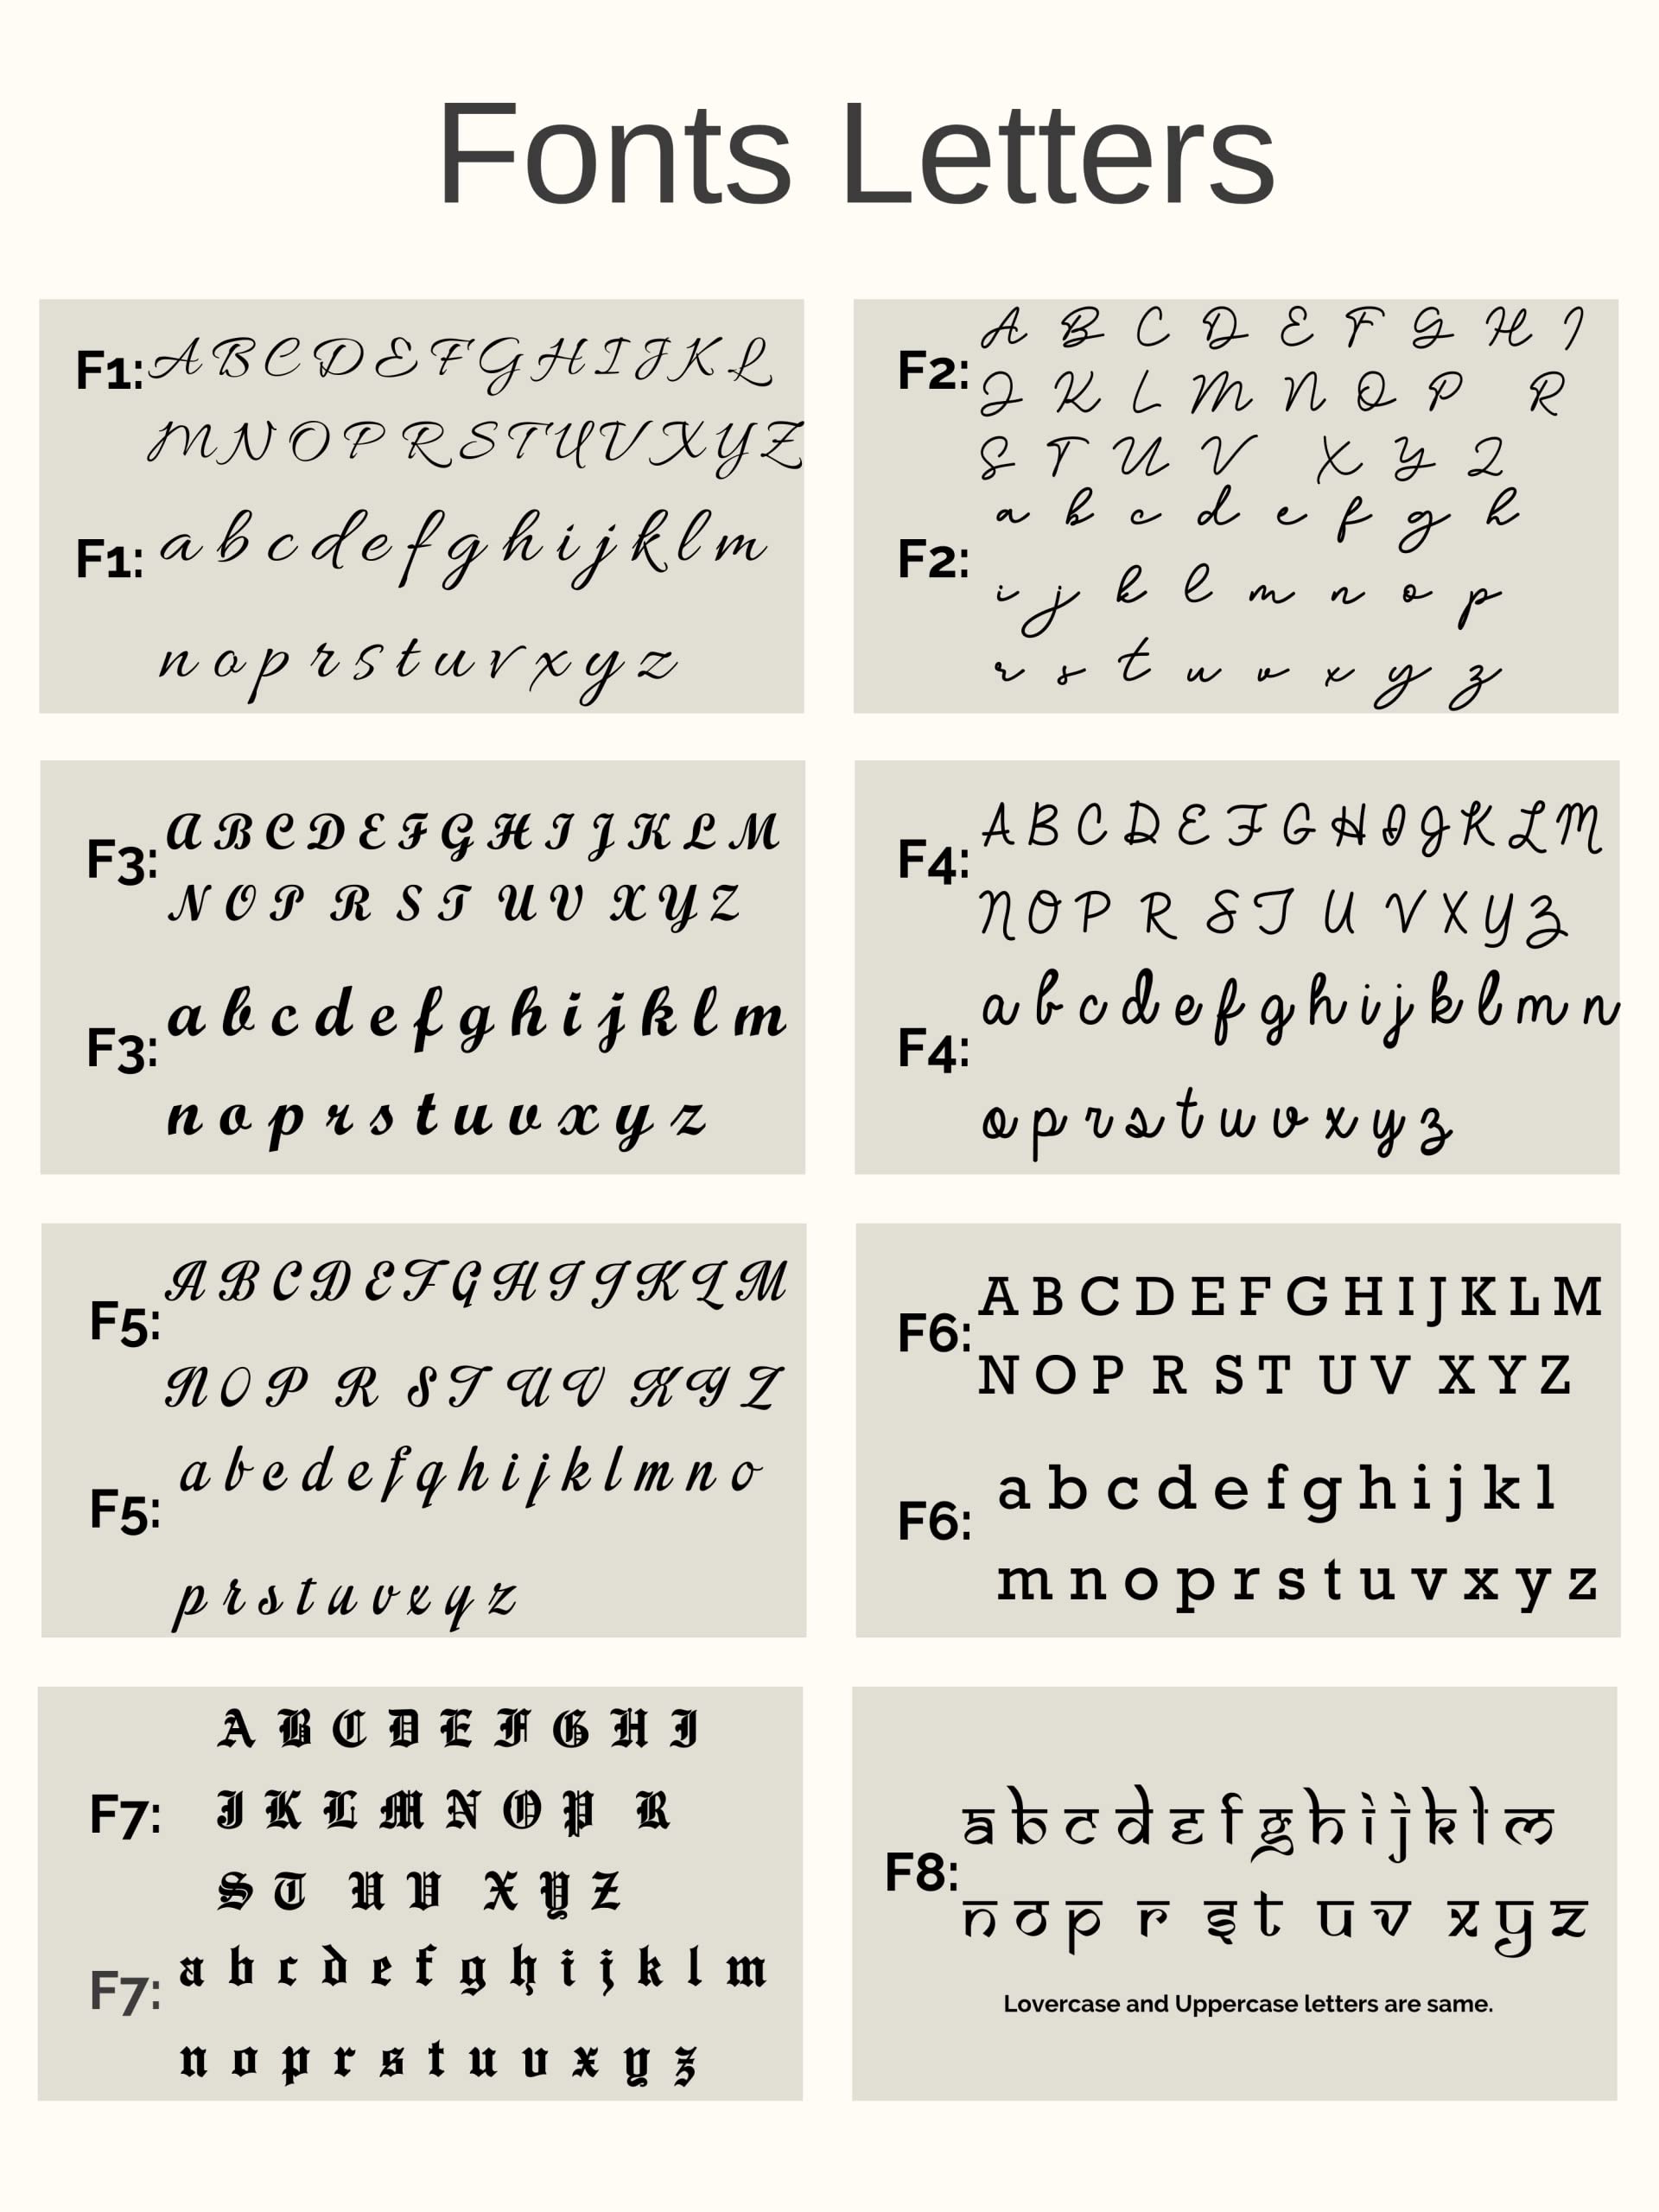 Fonts Letters
F1: A B C D E F G H I J K L
M N O P R S T U V X Y Z
F1: a b c d e f g h i j k l m
n o p r s t u v x y z
F2: A B C D E F G H I
J K L M N O P R
S T U V X Y Z
F2: a b c d e f g h
i j k l m n o p
r s t u v x y z
F3: A B C D E F G H I J K L M
N O P R S T U V X Y Z
F3: a b c d e f g h i j k l m
n o p r s t u v x y z
F4: A B C D E F G H I J K L M
N O P R S T U V X Y Z
F4: a b c d e f g h i j k l m n
o p r s t u v x y z
F5: A B C D E F G H I J K L M
N O P R S T U V X Y Z
F5: a b c d e f g h i j k l m n o
p r s t u v x y z
F6: A B C D E F G H I J K L M
N O P R S T U V X Y Z
F6: a b c d e f g h i j k l
m n o p r s t u v x y z
F7: A B C D E F G H I
J K L M N O P R
S T U V X Y Z
F7: a b c d e f g h i j k l m
n o p r s t u v x y z
F8: a b c d e f g h i j k l m
n o p r s t u v x y z
Lovercase and Uppercase letters are same.